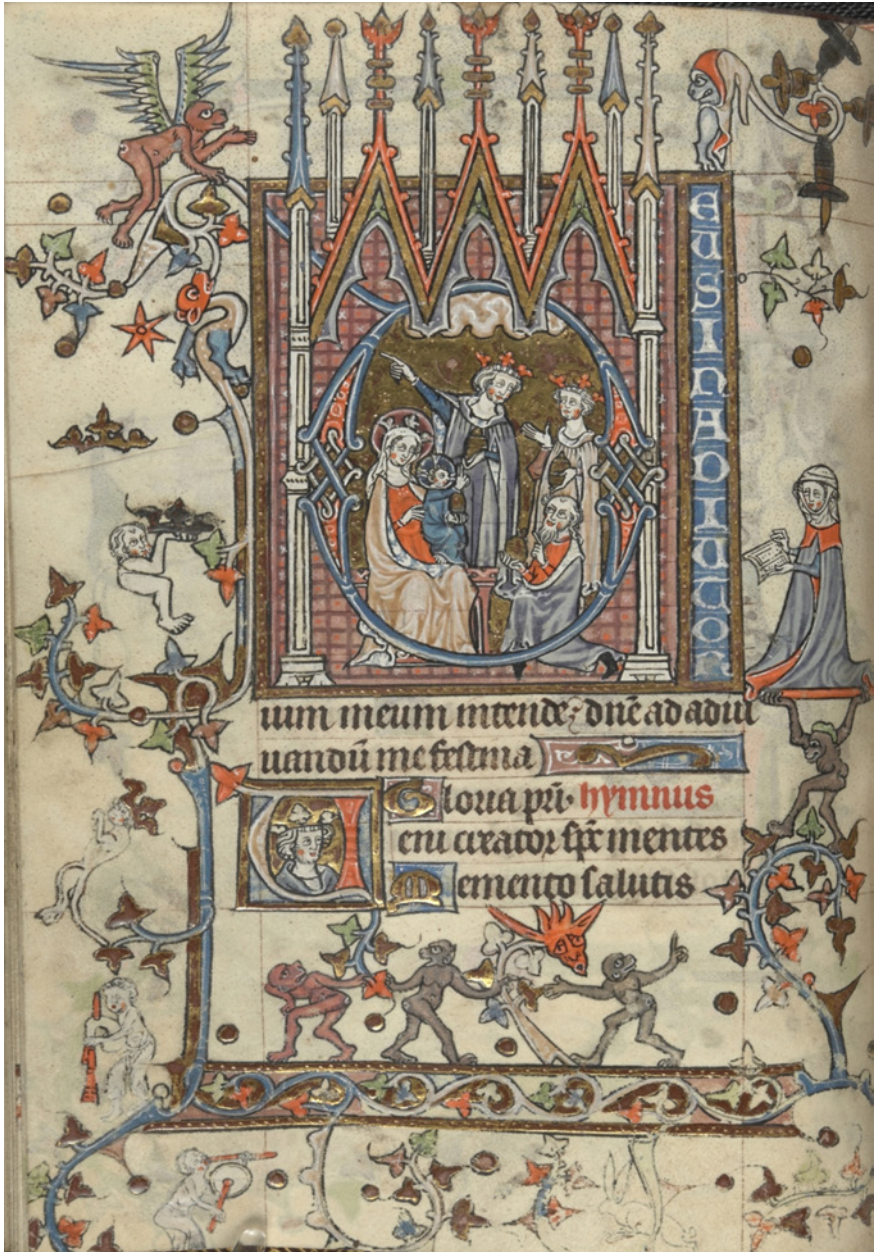 DEUSINADIUTOR
ium meum intende; dñe ad adiu
uandū me festina
Gloria pr̄i· hymnus
Ueni creator sp̄c mentes
Memento salutis